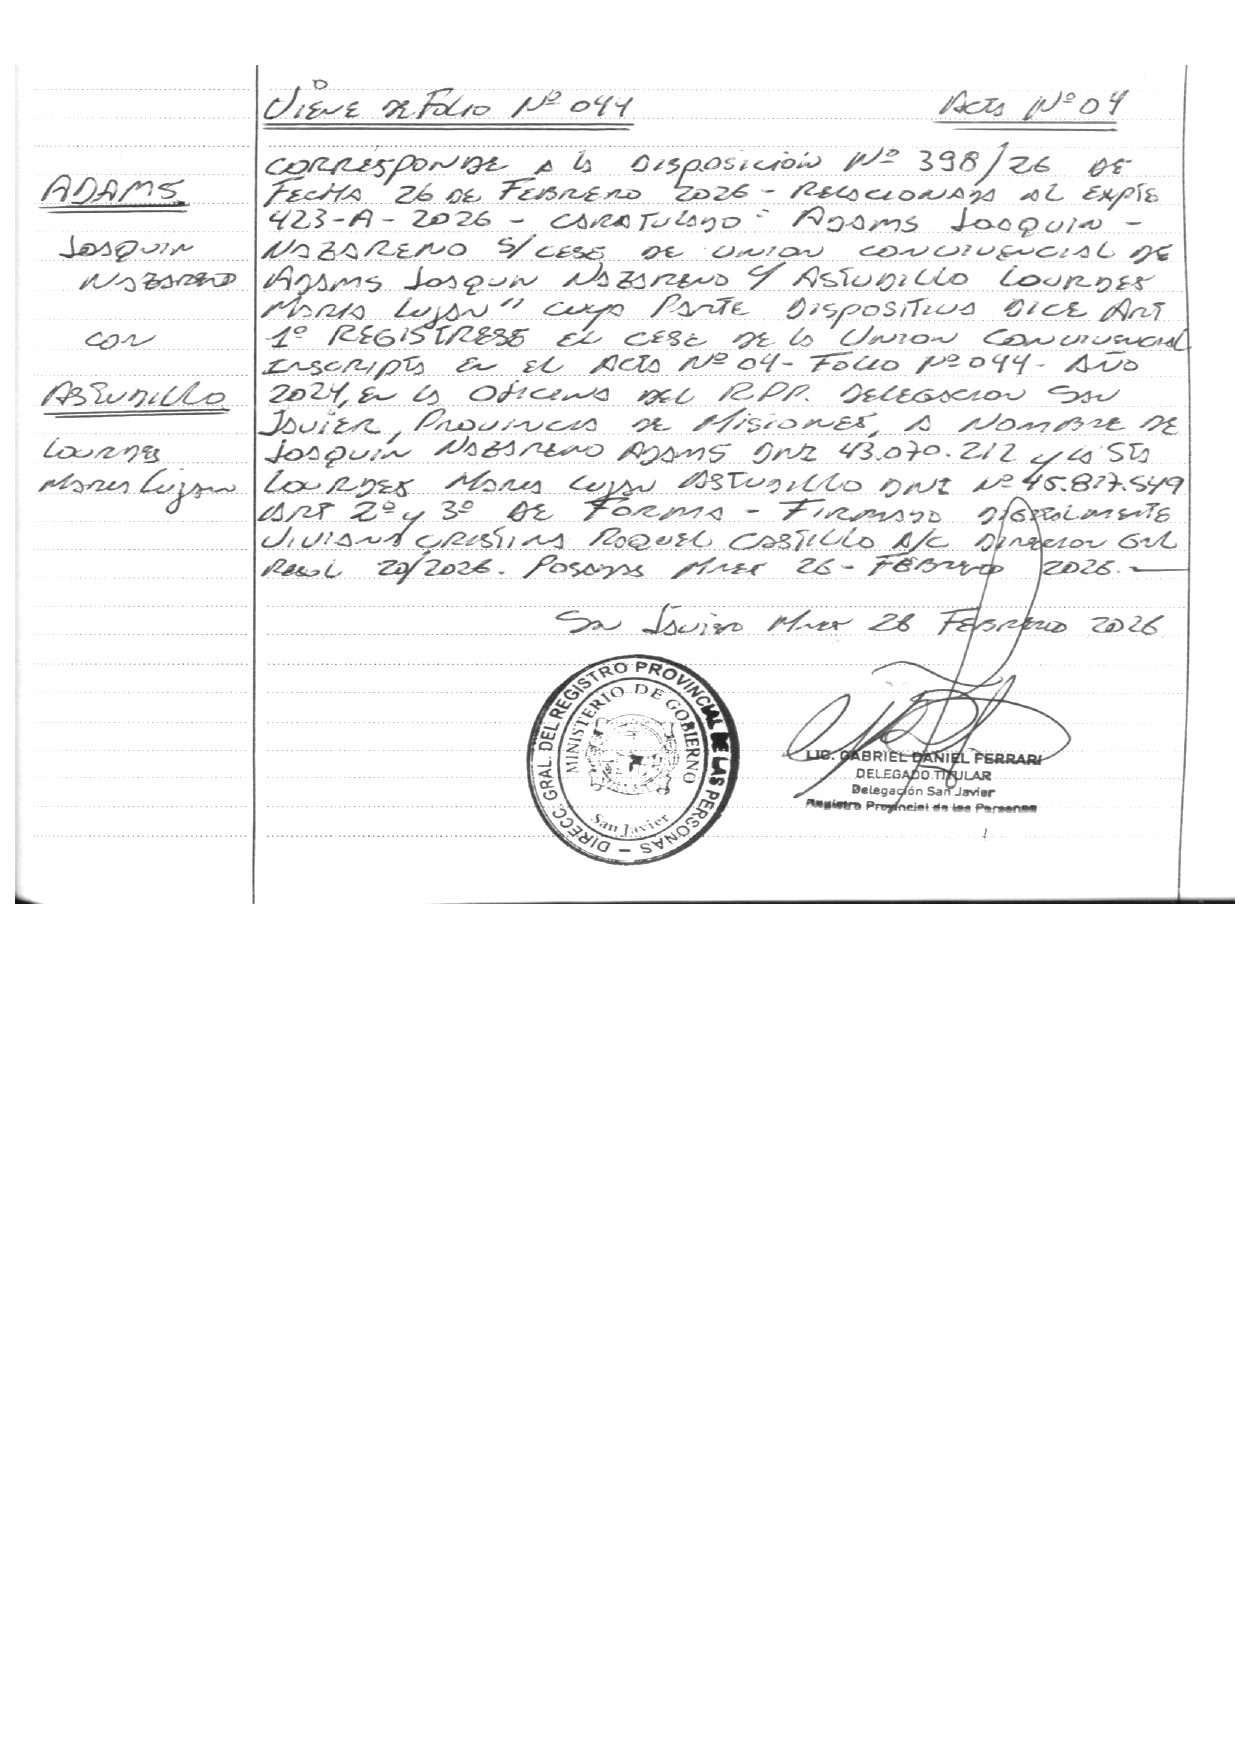 Viene de Folio Nº 044
Acta Nº 04
ADAMS
Joaquin
Nazareno
con
Astudillo
Lourdes
Maria Lujan
Corresponde a la Disposición Nº 398/26 de
Fecha 26 de Febrero 2026 - Relacionada al Expte
423-A-2026 - Caratulado: Adams Joaquin -
Nazareno s/cese de union convivencial de
Adams Joaquin Nazareno y Astudillo Lourdes
Maria Lujan" cuya Parte Dispositiva Dice Art
1º Registrese el cese de la Union Convivencial
Inscripta en el Acta Nº 04 - Folio Nº 044 - Año
2024, en la Oficina del R.P.P. Delegacion San
Javier, Provincia de Misiones, a nombre de
Joaquin Nazareno Adams DNI 43.070.212 y la Sta
Lourdes Maria Lujan Astudillo DNI Nº 45.827.549
Art 2º y 3º de Forma - Firmado Digitalmente
Viviana Cristina Raquel Castillo A/C Direccion Gral
Resol 20/2026. Posadas Mnes 26 - Febrero 2026.-
San Javier Mnes 26 Febrero 2026
DIRECC. GRAL. DEL REGISTRO PROVINCIAL DE LAS PERSONAS -
MINISTERIO DE GOBIERNO
San Javier
LIC. GABRIEL DANIEL FERRARI
DELEGADO TITULAR
Delegación San Javier
Registro Provincial de las Personas